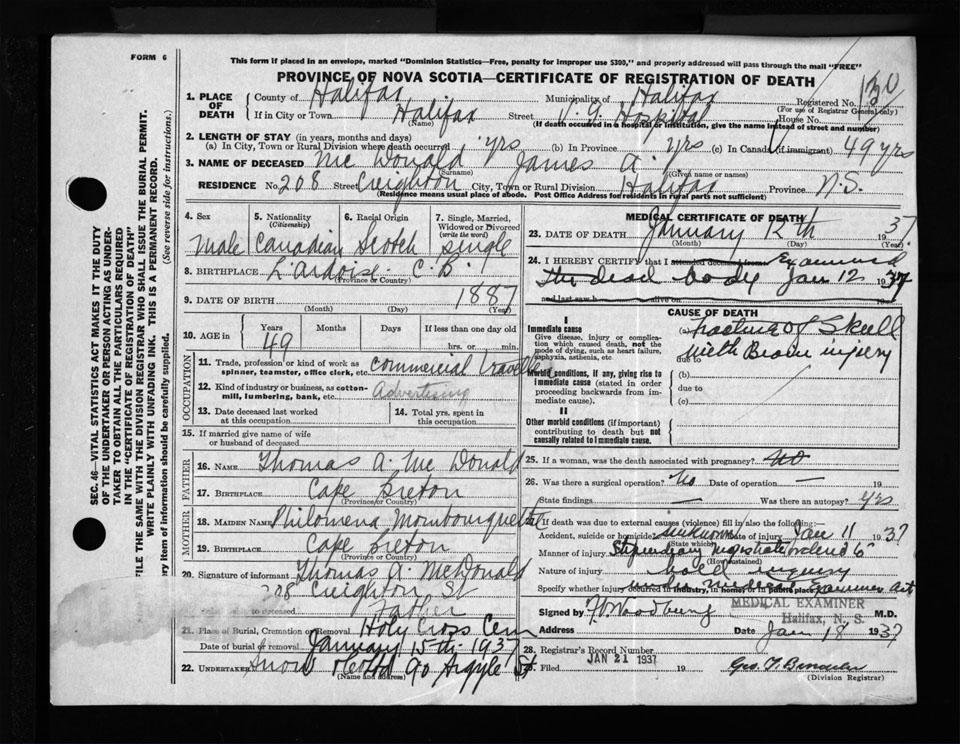 FORM 6
This form if placed in an envelope, marked "Dominion Statistics—Free, penalty for improper use $300," and properly addressed will pass through the mail "FREE"
PROVINCE OF NOVA SCOTIA—CERTIFICATE OF REGISTRATION OF DEATH
1. PLACE OF DEATH County of Halifax Municipality of Halifax Registered No. 130
(For use of Registrar General only)
If in City or Town Halifax Street V. G. Hospital House No.
(Name) (If death occurred in a hospital or institution, give the name instead of street and number)
2. LENGTH OF STAY (in years, months and days)
(a) In City, Town or Rural Division where death occurred yrs (b) In Province yrs (c) In Canada (if immigrant) 49 yrs
3. NAME OF DECEASED McDonald James A.
(Surname) (Given name or names)
RESIDENCE No. 208 Street Creighton City, Town or Rural Division Halifax Province N.S.
(Residence means usual place of abode. Post Office Address for residents in rural parts not sufficient)
4. Sex 5. Nationality (Citizenship) 6. Racial Origin 7. Single, Married, Widowed or Divorced (write the word)
Male Canadian Scotch Single
8. BIRTHPLACE L'Ardoise C.B.
(Province or Country)
9. DATE OF BIRTH 1887
(Month) (Day) (Year)
10. AGE in Years Months Days If less than one day old
49 hrs. or min.
OCCUPATION
11. Trade, profession or kind of work as spinner, teamster, office clerk, etc. Commercial traveller
12. Kind of industry or business, as cotton-mill, lumbering, bank, etc. Advertising
13. Date deceased last worked at this occupation 14. Total yrs. spent in this occupation
15. If married give name of wife or husband of deceased
FATHER
16. NAME Thomas A. McDonald
17. BIRTHPLACE Cape Breton
(Province or Country)
MOTHER
18. MAIDEN NAME Philomena Mombourquette
19. BIRTHPLACE Cape Breton
(Province or Country)
20. Signature of informant Thomas A. McDonald
208 Creighton St
to deceased Father
21. Place of Burial, Cremation or Removal Holy Cross Cem
Date of burial or removal January 15th 1937
22. UNDERTAKER Snow 90 Argyle St
(Name and address)
MEDICAL CERTIFICATE OF DEATH
23. DATE OF DEATH January 12th 1937
(Month) (Day) (Year)
24. I HEREBY CERTIFY that I attended deceased from Examined
the dead body Jan 12 1937
and last saw h alive on 19
CAUSE OF DEATH
I
Immediate cause
Give disease, injury or complication which caused death, not the mode of dying, such as heart failure, asphyxia, asthenia, etc.
(a) Fracture of Skull
due to with Brain injury
Morbid conditions, if any, giving rise to immediate cause (stated in order proceeding backwards from immediate cause).
(b)
due to
(c)
II
Other morbid conditions (if important) contributing to death but not causally related to immediate cause.
25. If a woman, was the death associated with pregnancy? No
26. Was there a surgical operation? No Date of operation — 19
State findings — Was there an autopsy? yes
27. If death was due to external causes (violence) fill in also the following:—
Accident, suicide or homicide? unknown Date of injury Jan 11 1937
(State which)
Manner of injury Stipendiary Magistrate
(How sustained)
Nature of injury head injury
Specify whether injury occurred in industry, in home, or in public place under Medical Examiner Act
MEDICAL EXAMINER
Halifax, N. S.
Signed by M.D.
Address Date Jan 18 1937
28. Registrar's Record Number
29. Filed JAN 21 1937 19
(Division Registrar)
SEC. 46—VITAL STATISTICS ACT MAKES IT THE DUTY
OF THE UNDERTAKER OR PERSON ACTING AS UNDER-
TAKER TO OBTAIN ALL THE PARTICULARS REQUIRED
IN THE "CERTIFICATE OF REGISTRATION OF DEATH"
FILE THE SAME WITH THE DIVISION REGISTRAR WHO SHALL ISSUE THE BURIAL PERMIT.
WRITE PLAINLY WITH UNFADING INK. THIS IS A PERMANENT RECORD.
ry item of information should be carefully supplied. (See reverse side for instructions.)